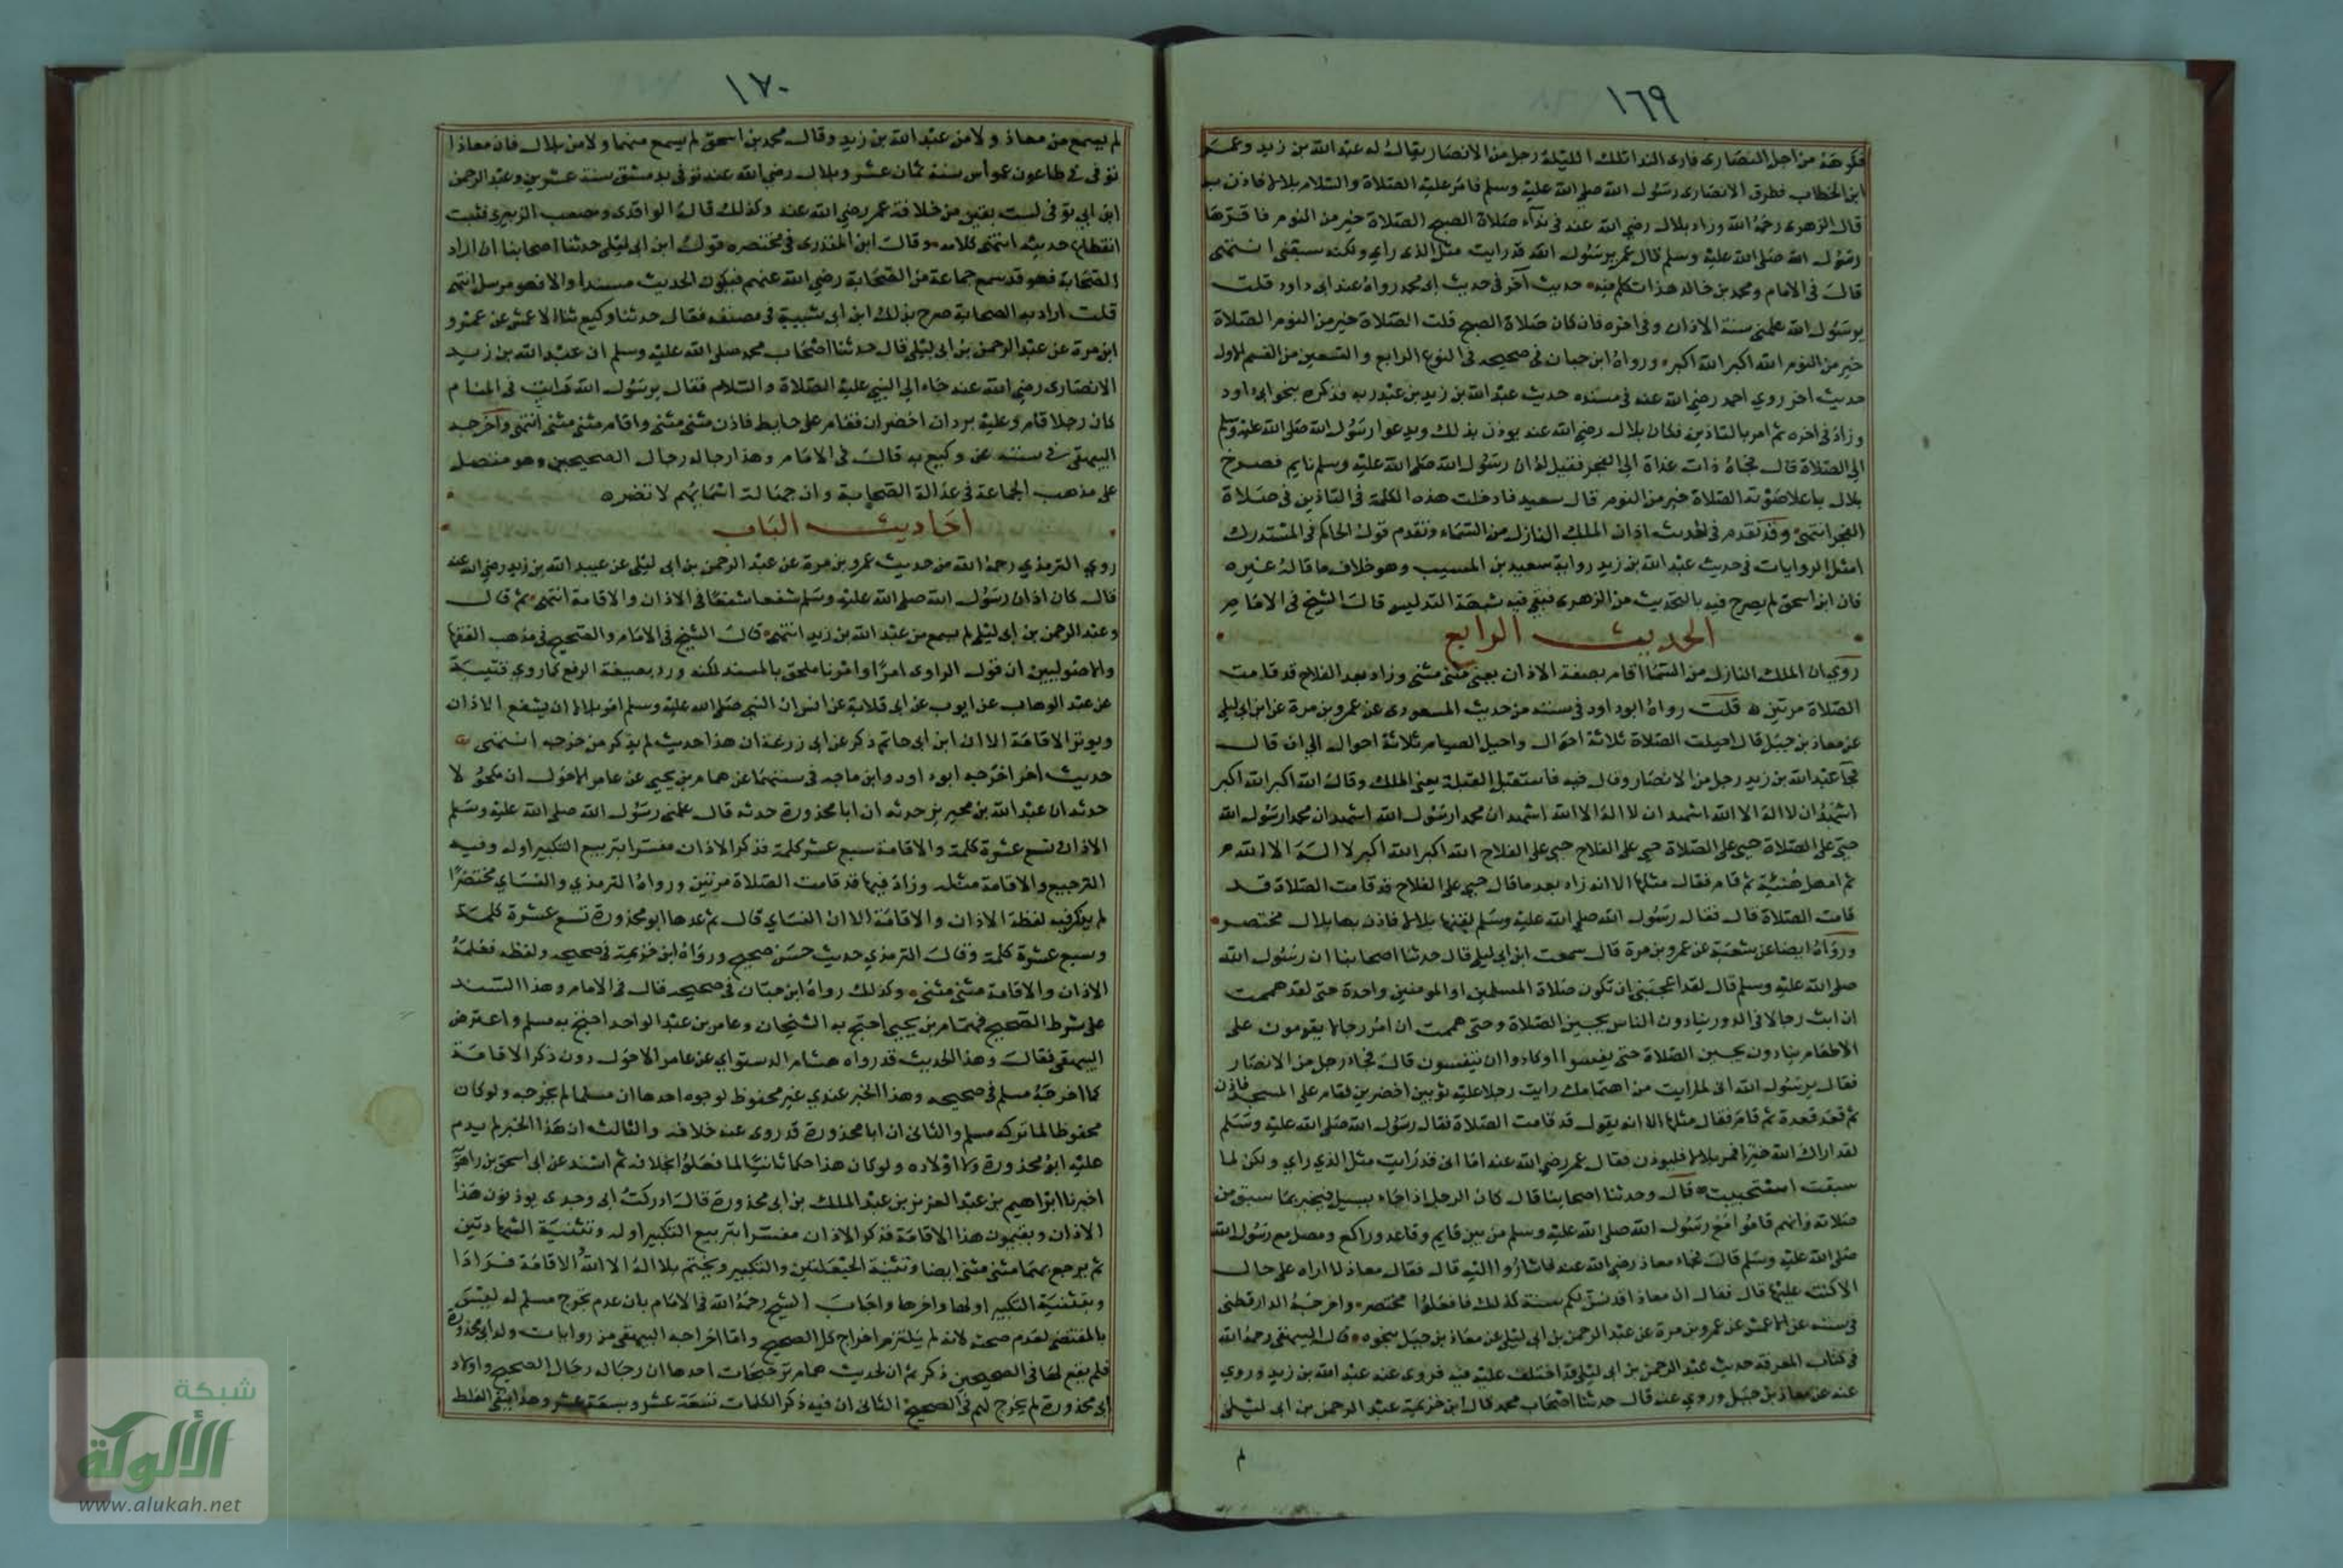 ١٦٩
فكرهه من اجل النصارى فارى الندا تلك الليلة رجل من الانصار يقال له عبد الله بن زيد وعمر
ابن الخطاب فطرق الانصارى رسول الله صلى الله عليه وسلم فامر عليه الصلاة والسلام بلالا فاذن به
قال الزهرى رحمه الله وزاد بلال رضي الله عنه في نداء صلاة الصبح الصلاة خير من النوم فاقرها
رسول الله صلى الله عليه وسلم قال عمر يرسول الله قد رايت مثل الذى راى ولكنه سبقنى انتهى
قال فى الامام ومحمد بن خالد هذا تكلم فيه حديث آخر فى حديث ابى محمد رواه عند ابى داود قلت
يرسول الله علمنى سنة الاذان وفى اخره فان كان صلاة الصبح قلت الصلاة خير من النوم الصلاة
خير من النوم الله اكبر الله اكبر ورواه ابن حبان فى صحيحه فى النوع الرابع والتسعين من القسم الاول
حديث اخر روي احمد رضي الله عنه فى مسنده حديث عبد الله بن زيد بن عبد ربه فذكره بنحو ابى داود
وزاد فى اخره ثم امر بالتاذين فكان بلال رضي الله عنه يوذن بذلك ويدعوا رسول الله صلى الله عليه وسلم
الى الصلاة قال فجاه ذات غداة الى الفجر فقيل له ان رسول الله صلى الله عليه وسلم نايم فصرخ
بلال باعلا صوته الصلاة خير من النوم قال سعيد فادخلت هذه الكلمة فى التاذين فى صلاة
الفجر انتهى وقد تقدم فى الحديث اذان الملك النازل من السماء وتقدم قول الحاكم فى المستدرك
امثل الروايات فى حديث عبد الله بن زيد رواية سعيد بن المسيب وهو خلاف ما قاله غيره
فان ابن اسحق لم يصرح فيه بالتحديث من الزهرى فبقى فيه شبهة التدليس قال الشيخ فى الامام
الحديث الرابع
روي ان الملك النازل من السما اقام بصفة الاذان يعنى مثنى مثنى وزاد بعد الفلاح قد قامت
الصلاة مرتين قلت رواه ابو داود فى سننه من حديث المسعودى عن عمرو بن مرة عن ابن ابى ليلى
عن معاذ بن جبل قال احيلت الصلاة ثلاثة احوال واحيل الصيام ثلاثة احوال الى ان قال
فجآ عبد الله بن زيد رجل من الانصار وقال فيه فاستقبل القبلة يعنى الملك وقال الله اكبر الله اكبر
اشهد ان لا اله الا الله اشهد ان لا اله الا الله اشهد ان محمدا رسول الله اشهد ان محمدا رسول الله
حي على الصلاة حي على الصلاة حي على الفلاح حي على الفلاح الله اكبر الله اكبر لا اله الا الله
ثم امهل هنية ثم قام فقال مثلها الا انه زاد بعد ما قال حي على الفلاح قد قامت الصلاة قد
قامت الصلاة قال فقال رسول الله صلى الله عليه وسلم لقنها بلالا فاذن بها بلال مختصر
ورواه ايضا عن شعبة عن عمرو بن مرة قال سمعت ابن ابى ليلى قال حدثنا اصحابنا ان رسول الله
صلى الله عليه وسلم قال لقد اعجبنى ان تكون صلاة المسلمين او المومنين واحدة حتى لقد هممت
ان ابث رجالا فى الدور ينادون الناس بحين الصلاة وحتى هممت ان امر رجالا يقومون على
الاطام ينادون بحين الصلاة حتى نقسوا اوكادوا ان ينقسون قال فجاء رجل من الانصار
فقال يرسول الله انى لما رايت من اهتمامك رايت رجلا عليه ثوبين اخضرين فقام على المسجد فاذن
ثم قعد قعدة ثم قام فقال مثلها الا انه يقول قد قامت الصلاة فقال رسول الله صلى الله عليه وسلم
لقد اراك الله خيرا فمر بلالا فليوذن فقال عمر رضي الله عنه اما انى قد رايت مثل الذي راي ولكن لما
سبقت استحييت قال وحدثنا اصحابنا قال كان الرجل اذا جاء يسيل فيخبر بما سبق من
صلاته وانهم قاموا مع رسول الله صلى الله عليه وسلم من بين قايم وقاعد وراكع ومصل مع رسول الله
صلى الله عليه وسلم قال فجاء معاذ رضي الله عنه فاشاروا اليه قال فقال معاذ لا اراه على حال
الا كنت عليها قال فقال ان معاذا قد سن لكم سنة كذلك فافعلوا مختصر واخرجه الدارقطنى
فى سننه عن الاعمش عن عمرو بن مرة عن عبد الرحمن بن ابى ليلى عن معاذ بن جبل بنحوه قال البيهقى رحمه الله
فى كتاب المعرفة حديث عبد الرحمن بن ابى ليلى قد اختلف عليه فيه فروى عنه عبد الله بن زيد وروي
عنه عن معاذ بن جبل وروي عنه قال حدثنا اصحاب محمد قال ابن خزيمة عبد الرحمن بن ابى ليلى
لم
١٧٠
لم يسمع من معاذ ولا من عبد الله بن زيد وقال محمد بن اسحق لم يسمع منهما ولا من بلال فان معاذا
توفى فى طاعون عمواس سنة ثمان عشر وبلال رضي الله عنه توفى بدمشق سنة عشرين وعبد الرحمن
ابن ابى توفى لست بقين من خلافة عمر رضي الله عنه وكذلك قاله الواقدى ومصعب الزبيرى فثبت
انقطاع حديثه انتهى كلامه وقال ابن المنذرى فى مختصره قول ابن ابى ليلى حدثنا اصحابنا ان اراد
الصحابة فهو قد سمع جماعة من الصحابة رضي الله عنهم فيكون الحديث مسندا والا فهو مرسل انتهى
قلت اراد به الصحابة صرح بذلك ابن ابى شيبة فى مصنفه فقال حدثنا وكيع ثنا الاعمش عن عمرو
ابن مرة عن عبد الرحمن بن ابى ليلى قال حدثنا اصحاب محمد صلى الله عليه وسلم ان عبد الله بن زيد
الانصارى رضي الله عنه جاء الى النبي عليه الصلاة والسلام فقال يرسول الله رايت فى المنام
كان رجلا قام وعليه بردان اخضران فقام على حايط فاذن مثنى مثنى واقام مثنى مثنى انتهى واخرجه
البيهقى فى سننه عن وكيع به قال فى الامام وهذا رجاله رجال الصحيحين وهو متصل
على مذهب الجماعة فى عدالة الصحابة وان جهالة اسمايهم لا تضره
احاديث الباب
روي الترمذي رحمه الله من حديث عمرو بن مرة عن عبد الرحمن بن ابى ليلى عن عبد الله بن زيد رضي الله عنه
قال كان اذان رسول الله صلى الله عليه وسلم شفعا شفعا فى الاذان والاقامة انتهى ثم قال
وعبد الرحمن بن ابى ليلى لم يسمع من عبد الله بن زيد انتهى قال الشيخ فى الامام والصحيح فى مذهب الفقها
والاصوليين ان قول الراوى امر او امرنا ملحق بالمسند لكنه ورد بصيغة الرفع كما روي قتيبة
عن عبد الوهاب عن ايوب عن ابى قلابة عن انس ان النبى صلى الله عليه وسلم امر بلالا ان يشفع الاذان
ويوتر الاقامة الا ان ابن ابى حاتم ذكر عن ابى زرعة ان هذا حديث لم يذكر من خرجه انتهى
حديث اخر اخرجه ابو داود وابن ماجه فى سننهما عن همام بن يحيى عن عامر الاحول ان مكحولا
حدثه ان عبد الله بن محيريز حدثه ان ابا محذورة حدثه قال علمنى رسول الله صلى الله عليه وسلم
الاذان تسع عشرة كلمة والاقامة سبع عشر كلمة فذكر الاذان مفسرا بتربيع التكبير اوله وفيه
الترجيع والاقامة مثله وزاد فيها قد قامت الصلاة مرتين ورواه الترمذي والنساي مختصرا
لم يذكر فيه لفظة الاذان والاقامة الا ان النساي قال ثم عدها ابو محذورة تسع عشرة كلمة
وسبع عشرة كلمة وقال الترمذي حديث حسن صحيح ورواه ابن خزيمة فى صحيحه ولفظه فعلمه
الاذان والاقامة مثنى مثنى وكذلك رواه ابن حبان فى صحيحه قال فى الامام وهذا السند
على شرط الصحيح فهمام بن يحيى احتج به الشيخان وعامر بن عبد الواحد احتج به مسلم واعترض
البيهقى فقال وهذا الحديث قد رواه هشام الدستواي عن عامر الاحول دون ذكر الاقامة
كما اخرجه مسلم فى صحيحه وهذا الخبر عندي غير محفوظ لوجوه احدها ان مسلما لم يخرجه ولو كان
محفوظا لما تركه مسلم والثانى ان ابا محذورة قد روى عنه خلافه والثالث ان هذا الخبر لم يدم
عليه ابو محذورة ولا اولاده ولو كان هذا حكما ثابتا لما فعلوا بخلافه ثم اسند عن ابى اسحق بن راهويه
اخبرنا ابراهيم بن عبد العزيز بن عبد الملك بن ابى محذورة قال ادركت ابى وجدى يوذنون هذا
الاذان ويقيمون هذا الاقامة فذكر الاذان مفسرا بتربيع التكبير اوله وتثنية الشهادتين
ثم يرجع بهما مثنى مثنى ايضا وتثنية الحيعلتين والتكبير ويختم بلا اله الا الله والاقامة فرادا
وبتثنية التكبير اولها واخرها واجاب الشيخ رحمه الله فى الامام بان عدم تخرج مسلم له ليس
بالمقتضى لعدم صحته لانه لم يلتزم اخراج كل الصحيح واما اخراجه البيهقى من روايات ولد ابى محذورة
فلم يقع لها فى الصحيحين ذكر ثم ان لحديث همام ترجيحات احدها ان رجاله رجال الصحيح واولاد
ابى محذورة لم يخرج لهم فى الصحيح الثانى ان فيه ذكر الكلمات تسعة عشر وسبعة عشر وهذا ينفى الغلط
شبكة
الألوكة
www.alukah.net